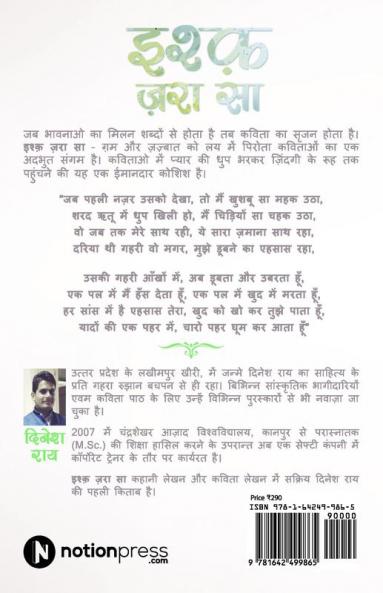 इश्क़
ज़रा सा
जब भावनाओ का मिलन शब्दों से होता है तब कविता का सृजन होता है।
इश्क़ ज़रा सा - ग़म और ज़ज्बात को लय में पिरोता कविताओं का एक
अदभुत संगम है। कविताओ में प्यार की धुप भरकर ज़िंदगी के रूह तक
पहुंचने की यह एक ईमानदार कोशिश है।
"जब पहली नज़र उसको देखा, तो मैं खुशबू सा महक उठा,
शरद ऋतू में धुप खिली हो, मैं चिड़ियों सा चहक उठा,
वो जब तक मेरे साथ रही, ये सारा ज़माना साथ रहा,
दरिया थी गहरी वो मगर, मुझे डूबने का एहसास रहा,
उसकी गहरी आँखों में, अब डूबता और उबरता हूँ,
एक पल में मैं हँस देता हूँ, एक पल में खुद में मरता हूँ,
हर सांस में है एहसास तेरा, खुद को खो कर तुझे पाता हूँ,
यादों की एक पहर में, चारो पहर घूम कर आता हूँ"
उत्तर प्रदेश के लखीमपुर खीरी, में जन्मे दिनेश राय का साहित्य के
प्रति गहरा रुझान बचपन से ही रहा। बिभिन्न सांस्कृतिक भागीदारियों
एवम कविता पाठ के लिए उन्हें विभिन्न पुरस्कारों से भी नवाज़ा जा
चुका है।
दिनेश
राय
2007 में चंद्रशेखर आज़ाद विश्वविद्यालय, कानपुर से परास्नातक
(M.Sc.) की शिक्षा हासिल करने के उपरान्त अब एक सेफ्टी कंपनी में
कॉर्पोरेट ट्रेनर के तौर पर कार्यरत है।
इश्क़ ज़रा सा कहानी लेखन और कविता लेखन में सक्रिय दिनेश राय
की पहली किताब है।
Price ₹290
ISBN 978-1-64249-986-5
90000
9 781642 499865
notionpress
.com